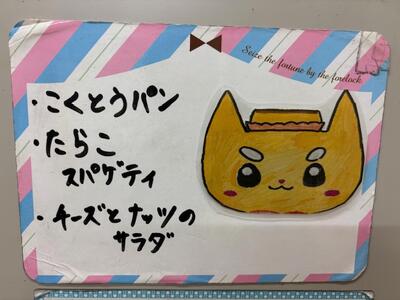 Seize the fortune by the forelock
・こくとうパン
・たらこ
スパゲティ
・チーズとナッツの
サラダ